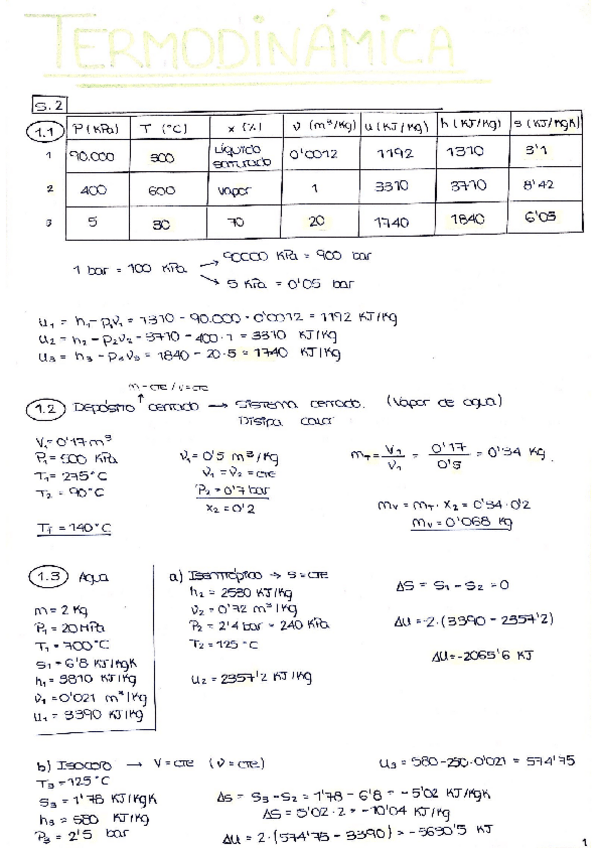 TERMODINÁMICA
S.2
1.1 P (KPa) T (°C) x (%) v (m³/Kg) u (KJ/Kg) h (KJ/Kg) s (KJ/KgK)
1 90.000 300 Líquido saturado 0'0012 1192 1310 3'1
2 400 600 vapor 1 3310 3710 8'42
3 5 30 70 20 1740 1840 6'05
1 bar = 100 KPa → 90000 KPa = 900 bar
→ 5 KPa = 0'05 bar
u₁ = h₁ - p₁v₁ = 1310 - 90.000 · 0'0012 = 1192 KJ/Kg
u₂ = h₂ - p₂v₂ = 3710 - 400·1 = 3310 KJ/Kg
u₃ = h₃ - p₃v₃ = 1840 - 20·5 = 1740 KJ/Kg
m=cte / v=cte
1.2 Depósito cerrado → Sistema cerrado. (Vapor de agua)
Disipa calor
V₁ = 0'17 m³
P₁ = 500 KPa
T₁ = 275°C
T₂ = 90°C
Tf = 140°C
v₁ = 0'5 m³/Kg
v₁ = v₂ = cte
P₂ = 0'7 bar
x₂ = 0'2
m_T = V₁/v₁ = 0'17/0'5 = 0'34 Kg.
m_v = m_T · x₂ = 0'34 · 0'2
m_v = 0'068 Kg
1.3 Agua
m = 2 Kg
P₁ = 20 MPa
T₁ = 700°C
s₁ = 6'8 KJ/KgK
h₁ = 3810 KJ/Kg
v₁ = 0'021 m³/Kg
u₁ = 3390 KJ/Kg
a) Isentrópico → s = cte
h₂ = 2530 KJ/Kg
v₂ = 0'72 m³/Kg
P₂ = 2'4 bar = 240 KPa
T₂ = 125°C
u₂ = 2357'2 KJ/Kg
ΔS = S₁ - S₂ = 0
ΔU = -2·(3390 - 2357'2)
ΔU = -2065'6 KJ
b) Isocoro → V = cte (v = cte)
T₃ = 125°C
s₃ = 1'78 KJ/KgK
h₃ = 580 KJ/Kg
P₃ = 2'5 bar
u₃ = 580 - 250·0'021 = 574'75
Δs = s₃ - s₂ = 1'78 - 6'8 = -5'02 KJ/KgK
ΔS = 5'02·2 = -10'04 KJ/Kg
ΔU = 2·(574'75 - 3390) = -5630'5 KJ
1